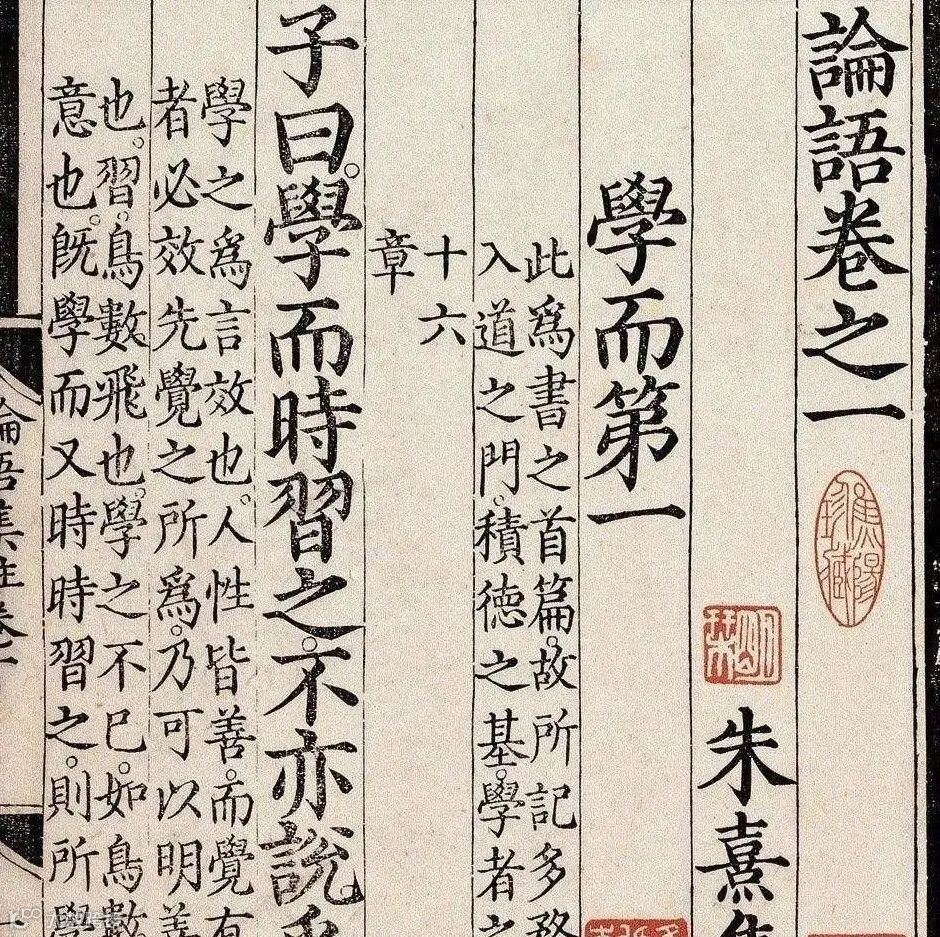 論語卷之一
朱熹集
學而第一
此爲書之首篇故所記多務
入道之門積德之基學者之
十六
章
子曰學而時習之不亦說乎
學之爲言效也人性皆善而覺有
者必效先覺之所爲乃可以明善
也習鳥數飛也學之不已如鳥數
意也旣學而又時時習之則所學
論語集註卷一